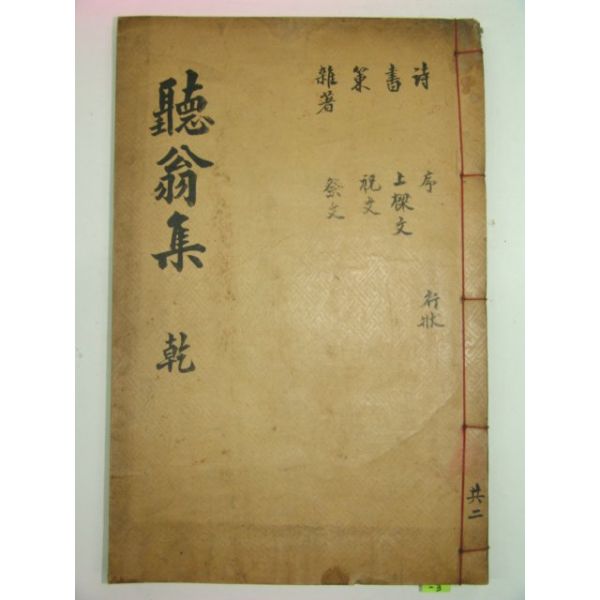 聽翁集 乾
詩 序 行狀
書 上樑文
策 祝文
雜著 祭文
共二
-3